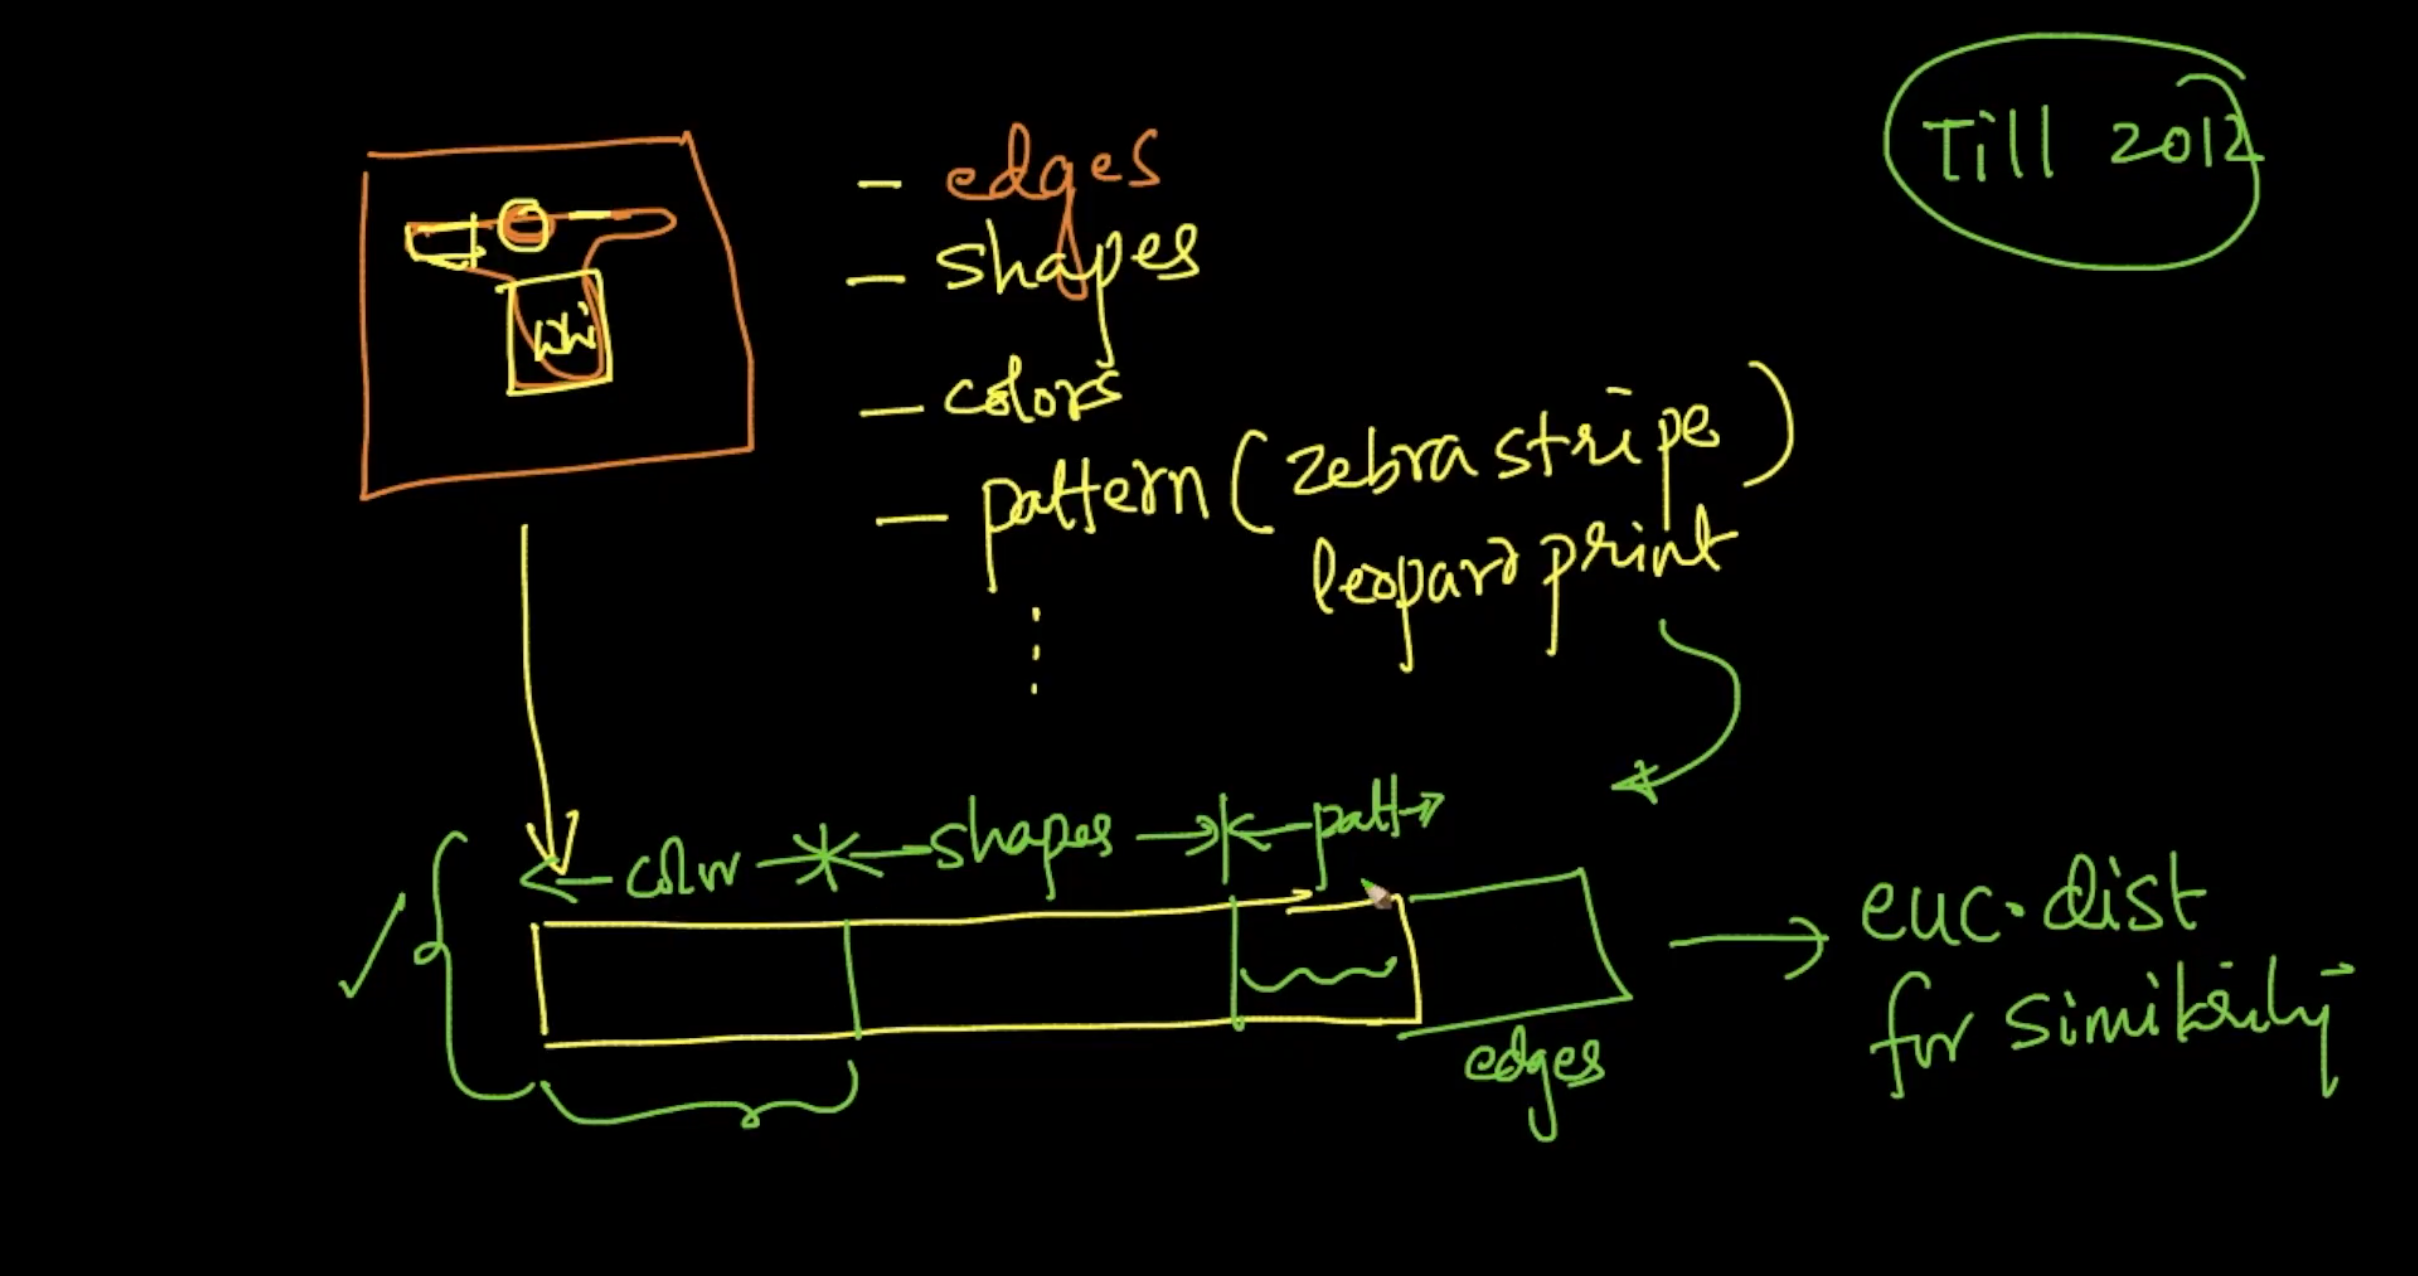 Till 2012
- edges
- shapes
- colors
- pattern (zebra stripe)
leopard print
← color → ← shapes → ← patt →
edges
→ euc. dist
for similarily